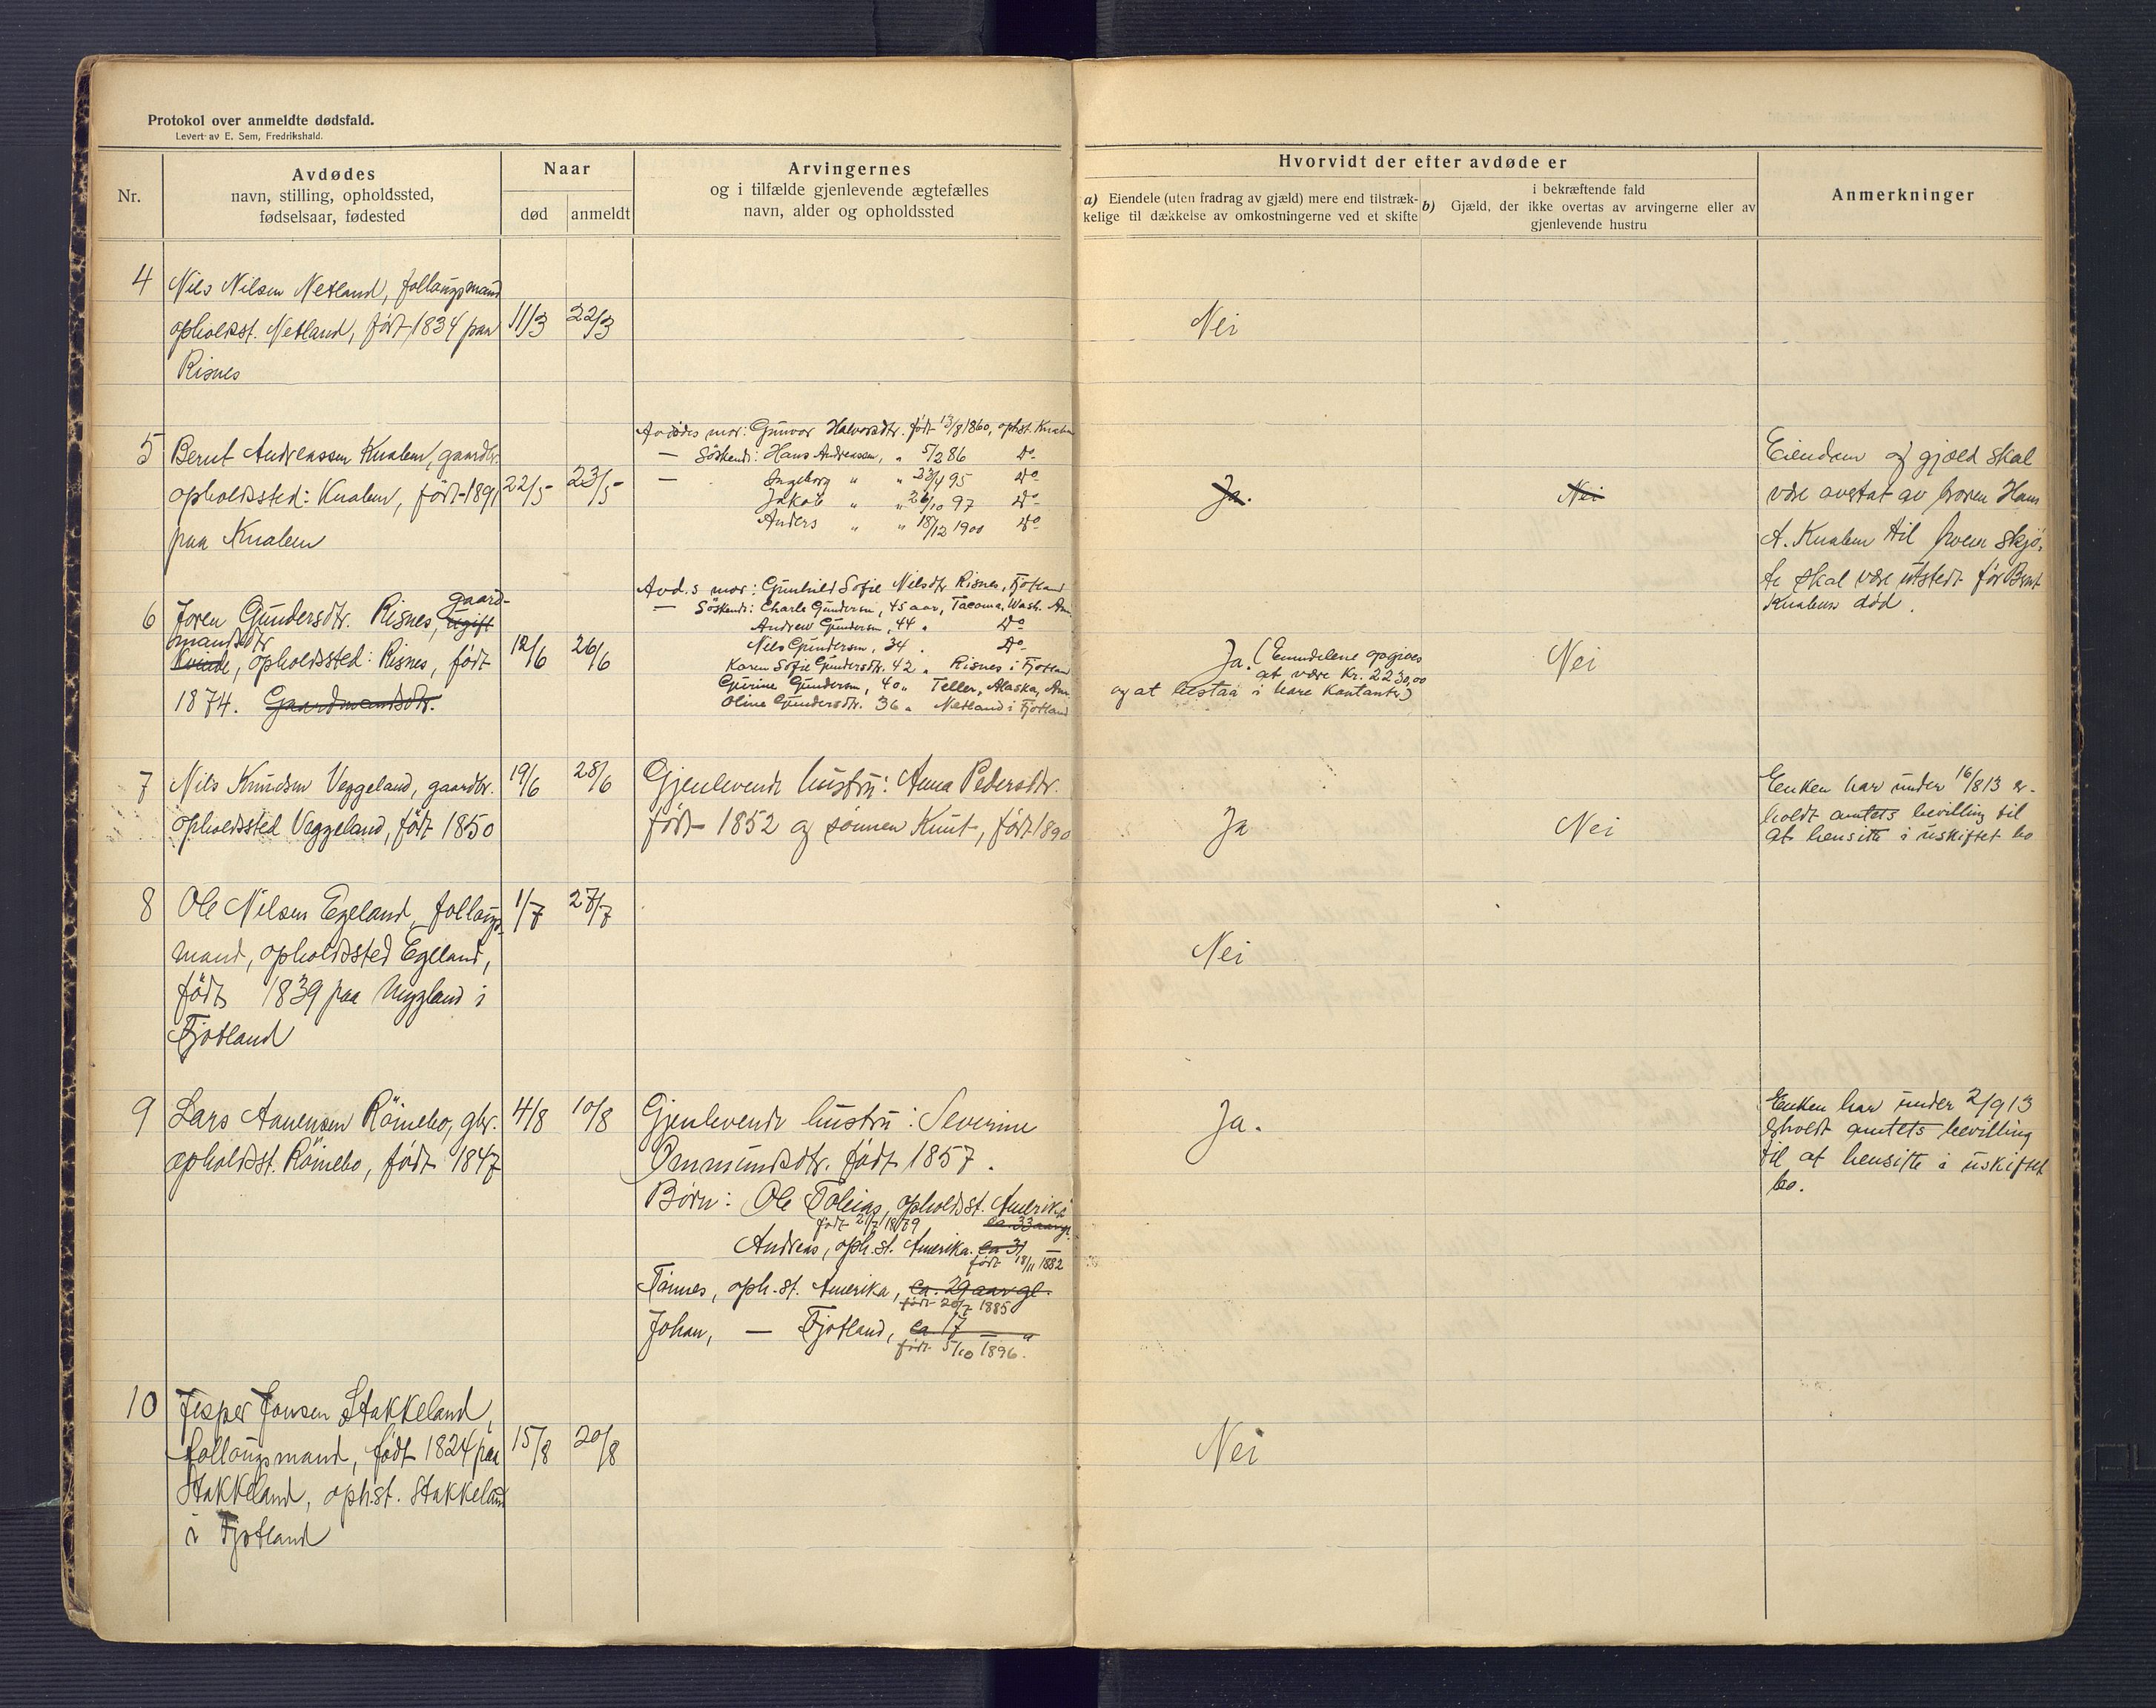 Protokol over anmeldte dødsfald.
Levert av E. Sem, Fredrikshald.
Nr.
Avdødes
navn, stilling, opholdssted,
fødselsaar, fødested
Naar
død
anmeldt
Arvingernes
og i tilfælde gjenlevende ægtefælles
navn, alder og opholdssted
Hvorvidt der efter avdøde er
a) Eiendele (uten fradrag av gjæld) mere end tilstræk-
kelige til dækkelse av omkostningerne ved et skifte
i bekræftende fald
b) Gjæld, der ikke overtas av arvingerne eller av
gjenlevende hustru
Anmerkninger
4 Nils Nilsen Netland, follaugsmand
opholdsst. Netland, født 1834 paa 11/3 22/3 Nei
Risnes
5 Bernt Andreassen Knaben, gaardbr.
opholdssted: Knaben, født 1891 22/5 23/5
paa Knaben
Avdødes mor: Gunvor Halvorsdtr. født 13/8 1860, ophst. Knaben
— Söskende: Hans Andreassen, " 5/2 86 Do
— Ingeborg " " 23/4 95 Do
Jakob " " 26/10 97 Do
Anders " " 18/12 1900 Do
Ja. Nei
Eiendom og gjæld skal
være overtat av broren Hans
A. Knaben til hvem skjö-
te skal være utstedt før Bernt
Knabens död.
6 Joren Gundersdtr. Risnes, ugift gaard-
mandsdtr
Kvinde, opholdssted: Risnes, født 12/6 26/6
1874. Gaardmandsdtr.
Avd.s mor: Gunhild Sofie Nilsdtr Risnes, Fjotland
— Söskende: Charle Gundersen, 45 aar, Tacoma, Wash. Am.
Andrew Gundersen, 44 " Do
Nils Gundersen, 34 . Do
Karen Sofie Gundersdtr. 42 " Risnes i Fjotland
Gurine Gundersen, 40 " Teller, Alaska, Am.
Oline Gundersdtr. 36 " Netland i Fjotland
Ja. (Eiendelene opgives
at være Kr. 2230,00
og at bestaa i bare Kontanter)
Nei
7 Nils Knudsen Veggeland, gaardbr. 19/6 28/6
opholdssted Veggeland, født 1850
Gjenlevende hustru: Anna Pedersdtr.
født 1852 og sønnen Knut, født 1890
Ja Nei
Enken har under 16/8 13 er-
holdt amtets bevilling til
at hensitte i uskiftet bo
8 Ole Nilsen Egeland, follaugs- 1/7 27/7
mand, opholdssted Egeland, Nei
født 1839 paa Veggland i
Fjotland
9 Lars Aanensen Röinebo, gbr. 4/8 10/8
opholdsst. Röinebo, født 1847
Gjenlevende hustru: Severine
Ommundsdtr. født 1857.
Børn: Ole Tobias, opholdsst. Amerika
født 21/7 1879 ca. 33 aar gl.
Andreas, oph.st. Amerika. ca 31
født 18/11 1882
Tönnes, oph.st. Amerika, ca. 29 aar gl.
født 20/7 1885
Johan, — Fjotland, ca. 17 — "
født 5/10 1896.
Ja.
Enken har under 2/9 13
erholdt amtets bevilling
til at hensitte i uskiftet
bo.
10 Jesper Jonsen Stakkeland,
follaugsmand, født 1824 paa 15/8 20/8 Nei
Stakkeland, ophst. Stakkeland
i Fjotland